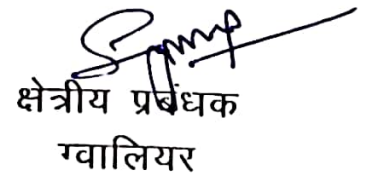 क्षेत्रीय प्रबंधक
ग्वालियर